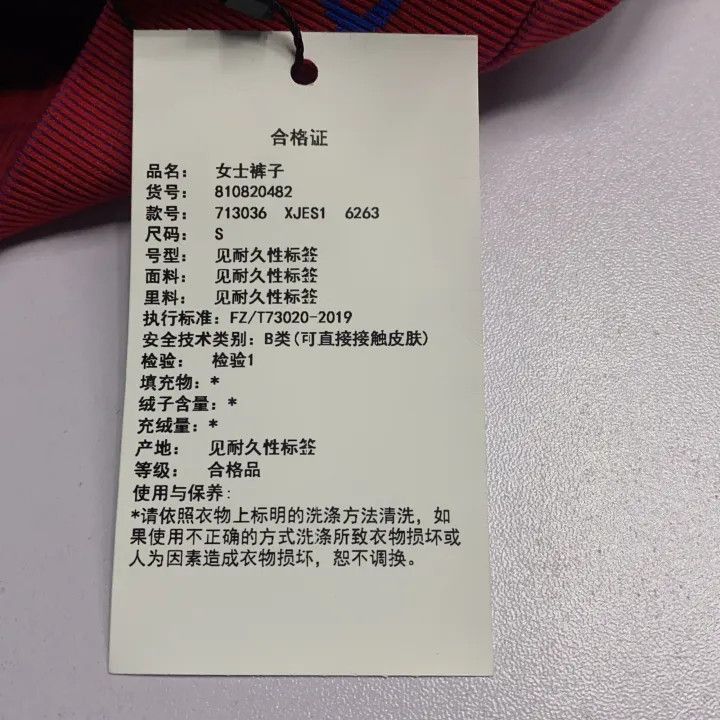 合格证
品名: 女士裤子
货号: 810820482
款号: 713036 XJES1 6263
尺码: S
号型: 见耐久性标签
面料: 见耐久性标签
里料: 见耐久性标签
执行标准: FZ/T73020-2019
安全技术类别: B类(可直接接触皮肤)
检验: 检验1
填充物: *
绒子含量: *
充绒量: *
产地: 见耐久性标签
等级: 合格品
使用与保养:
*请依照衣物上标明的洗涤方法清洗，如
果使用不正确的方式洗涤所致衣物损坏或
人为因素造成衣物损坏，恕不调换。